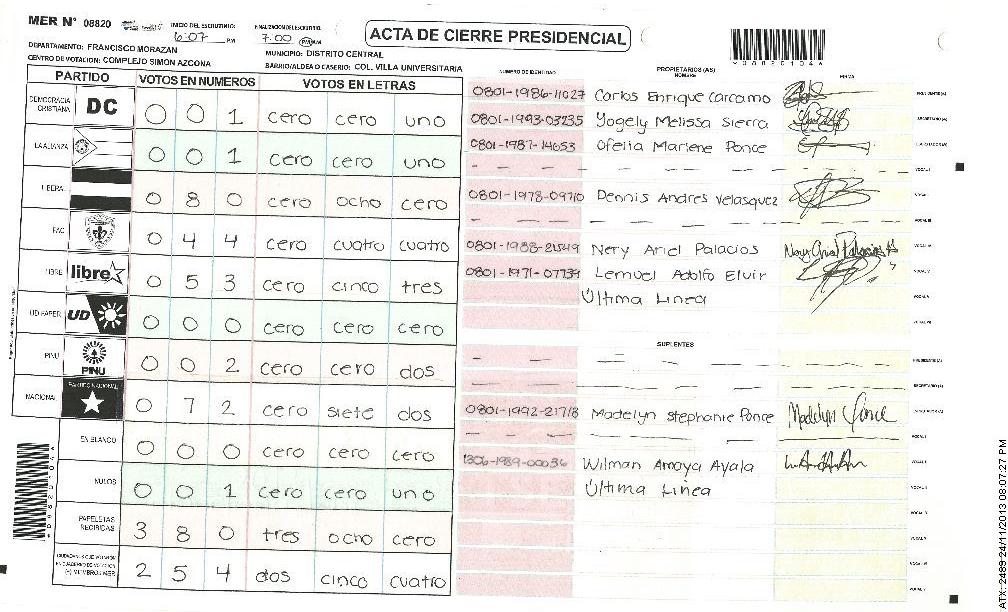 MER N° 08820
INICIO DEL ESCRUTINIO:
6:07 PM
FINALIZACION DEL ESCRUTINIO
7:00 PM
ACTA DE CIERRE PRESIDENCIAL
DEPARTAMENTO: FRANCISCO MORAZAN
MUNICIPIO: DISTRITO CENTRAL
CENTRO DE VOTACION: COMPLEJO SIMON AZCONA
BARRIO/ALDEA O CASERIO: COL. VILLA UNIVERSITARIA
PARTIDO VOTOS EN NUMEROS VOTOS EN LETRAS
DEMOCRACIA CRISTIANA DC 0 0 1 cero cero uno
LA ALIANZA 0 0 1 cero cero uno
LIBERAL 0 8 0 cero ocho cero
PAC 0 4 4 cero cuatro cuatro
LIBRE libre 0 5 3 cero cinco tres
UD FAPER UD 0 0 0 cero cero cero
PINU PINU 0 0 2 cero cero dos
NACIONAL PARTIDO NACIONAL 0 7 2 cero siete dos
EN BLANCO 0 0 0 cero cero cero
NULOS 0 0 1 cero cero uno
PAPELETAS RECIBIDAS 3 8 0 tres ocho cero
CIUDADANOS QUE VOTARON EN CUADERNO DE VOTACION (+) MIEMBROS MER 2 5 4 dos cinco cuatro
NUMERO DE IDENTIDAD PROPIETARIOS (AS) NOMBRE FIRMA
0801-1986-11027 Carlos Enrique Carcamo PRESIDENTE(A)
0801-1993-03235 Yogely Melissa Sierra SECRETARIO(A)
0801-1987-14653 Ofelia Marlene Ponce ESCRUTADOR(A)
- - - - VOCAL I
0801-1978-09710 Dennis Andres Velasquez VOCAL II
- - - - VOCAL III
0801-1988-21549 Nery Ariel Palacios Nery Ariel Palacios VOCAL IV
0801-1971-07739 Lemuel Adolfo Elvir VOCAL V
Última Linea VOCAL VI
VOCAL VII
SUPLENTES
- - - - PRESIDENTE(A)
- - - - SECRETARIO(A)
0801-1992-21718 Madelyn Stephanie Ponce Madelyn Ponce ESCRUTADOR(A)
- - - - VOCAL I
1306-1989-00036 Wilman Amaya Ayala VOCAL II
Última Linea VOCAL III
VOCAL IV
VOCAL V
VOCAL VI
VOCAL VII
ATX: 2489-24/11/2013 08:07:27 PM